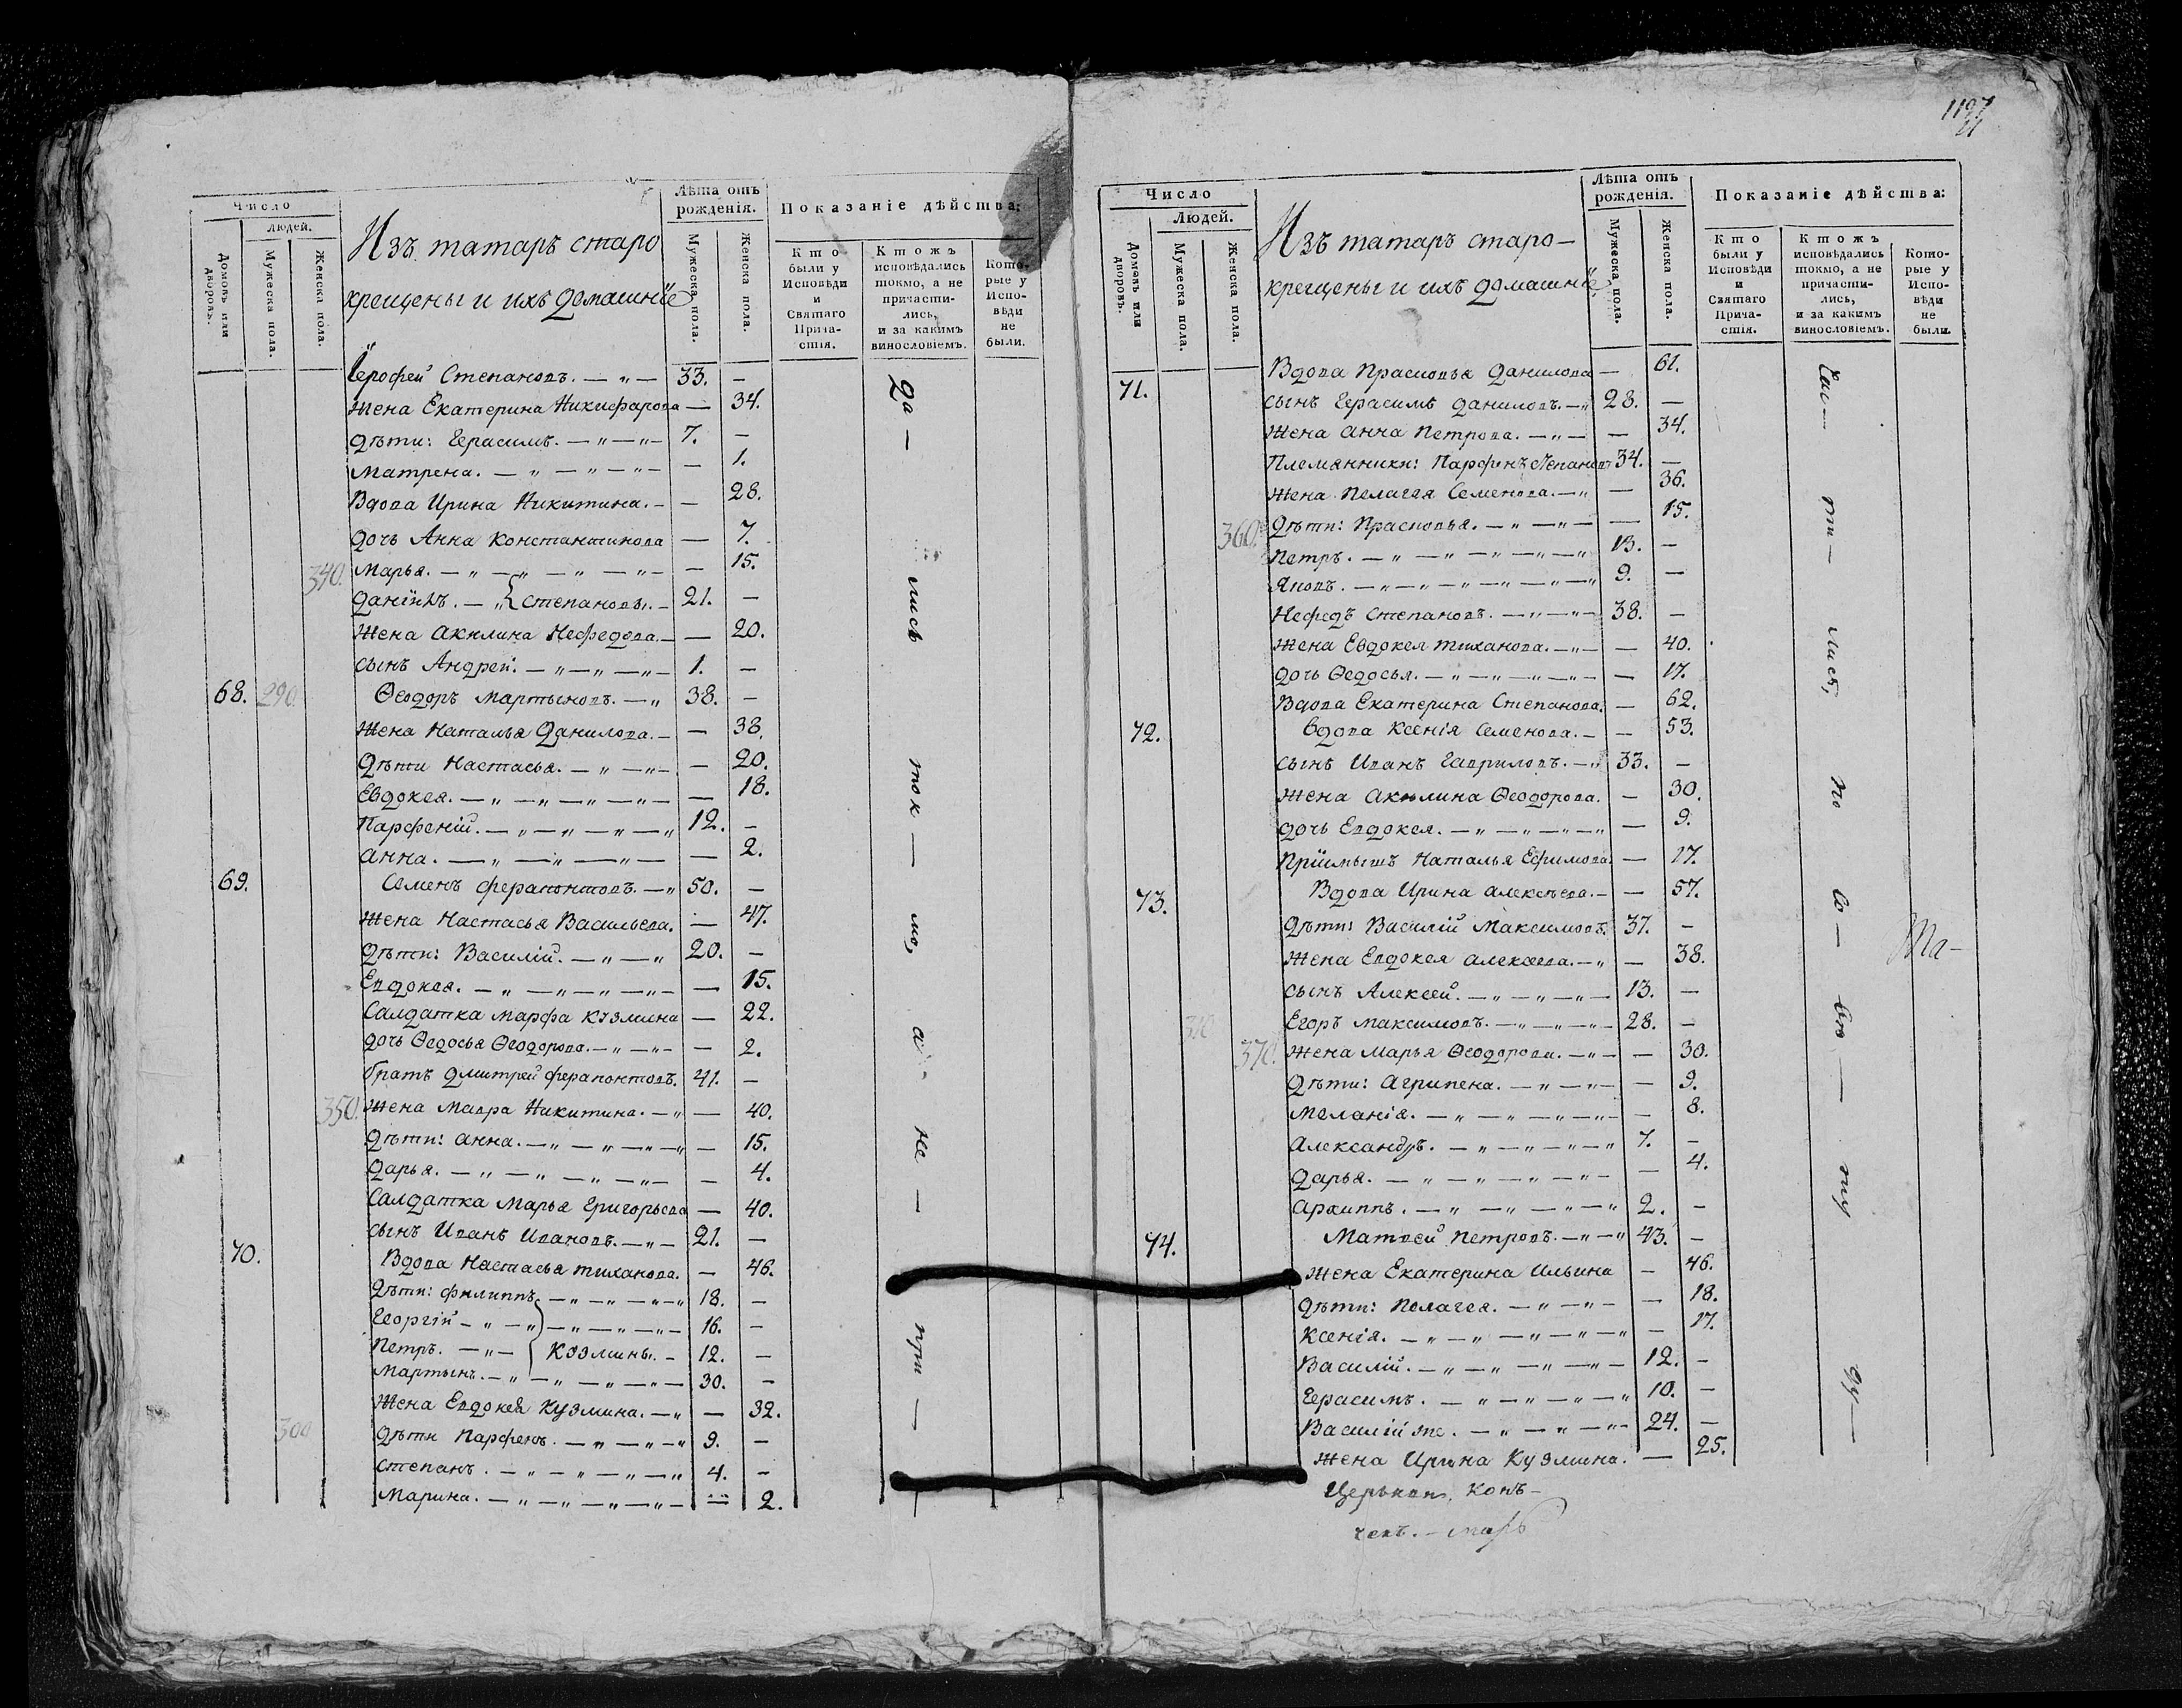 1197
Число
Людей.
Домовъ или дворовъ.
Мужеска пола.
Женска пола.
Изъ татаръ старо
крещены и ихъ домашнïе
Лѣта отъ рожденïя.
Мужеска пола.
Женска пола.
Показанïе дѣйства:
Кто были у Исповѣди и Святаго Прича-стïя.
Ктожъ исповѣдались токмо, а не причасти-лись, и за какимъ винословïемъ.
Кото-рые у Испо-вѣди не были.
Iерофей Степановъ. — „ — 33. —
Жена Екатерина Никифарова — 34.
Дѣти: Герасимъ. — „ — „ — 7. —
Матрена. — „ — „ — „ — — 1.
Вдова Ирина Никитина. — — 28.
дочь Анна Константинова — 7.
340. Марья. — „ — „ — „ — „ — — 15.
Данïилъ. — „ } Степановы. — 21. —
Жена Акилина Нефедова. — — 20.
сынъ Андрей. — „ — „ — „ — 1. —
68. 290. Ѳеодоръ Мартыновъ. — „ 38. —
Жена Наталья Данилова. — — 38.
Дѣти Настасья. — „ — „ — — 20.
Евдокея. — „ — „ — „ — „ — — 18.
Парфенïй. — „ — „ — „ — „ 12. —
Анна. — „ — „ — „ — — 2.
69. Семенъ Ферапонтовъ. — „ 50. —
Жена Настасья Васильева. — 47.
Дѣти: Василïй. — „ — „ 20. —
Евдокея. — „ — „ — „ — „ — — 15.
Салдатка Марфа Кузмина — 22.
дочь Ѳедосья Ѳеодорова. — „ — „ — — 2.
братъ Дмитрей Ферапонтовъ. 41. —
350. Жена Мавра Никитина. — „ — 40.
Дѣти: Анна. — „ — „ — „ — „ — 15.
Дарья. — „ — „ — „ — „ — — 4.
Салдатка Марья Григорьева — 40.
сынъ Иванъ Ивановъ. — „ — 21. —
70. Вдова Настасья Тиханова. — 46.
Дѣти: Филиппъ. — „ — „ — „ — „ 18. —
Георгïй — „ — „ — „ — „ — „ — 16. —
Петръ. — „ — } Кузмины. — 12. —
Мартынъ. — „ — „ — „ — „ — 30. —
Жена Евдокея Кузмина. — „ — 32.
300 Дѣти Парфенъ. — „ — „ — „ 9. —
Степанъ. — „ — „ — „ — „ 4. —
Марина. — „ — „ — „ — „ — — 2.
да — лись ток — мо, а не — при —
Число
Людей.
Домовъ или дворовъ.
Мужеска пола.
Женска пола.
Изъ татаръ старо—
крещены и ихъ домашнïе
Лѣта отъ рожденïя.
Мужеска пола.
Женска пола.
Показанïе дѣйства:
Кто были у Исповѣди и Святаго Прича-стïя.
Ктожъ исповѣдались токмо, а не причасти-лись, и за каким винословïемъ.
Кото-рые у Испо-вѣди не были.
71. Вдова Прасковья Данилова — 61.
сынъ Герасимъ Даниловъ. — „ 28. —
Жена Анна Петрова. — „ — — 34.
Племянники: Парфенъ Степановъ 34. —
Жена Пелагея Семенова. — „ — 36.
360. Дѣти: Прасковья. — „ — „ — — 15.
Петръ. — „ — „ — „ — „ — „ 13. —
Яковъ. — „ — „ — „ — „ — „ 9. —
Нефедъ Степановъ. — „ — „ — 38. —
Жена Евдокея Тиханова. — „ — — 40.
дочь Ѳедосья. — „ — „ — „ — „ — — 17.
Вдова Екатерина Степанова. — 62.
72. Вдова Ксенïя Семенова. — — 53.
сынъ Иванъ Гавриловъ. — „ 33. —
Жена Акилина Ѳеодорова. — 30.
дочь Евдокея. — „ — „ — „ — „ — 9.
Прïимышъ Наталья Ефимова. — 17.
73. Вдова Ирина Алексѣева. — — 57.
Дѣти: Василïй Максимовъ. 37. —
Жена Евдокея Алексеева. — „ — 38.
сынъ Алексей. — „ — „ — „ — 13. —
310 Егоръ Максимовъ. — „ — „ — „ — 28. —
370. Жена Марья Ѳеодорова. — „ — — 30.
Дѣти: Агрипена. — „ — „ — — 9.
Меланïя. — „ — „ — „ — „ — — 8.
Александръ. — „ — „ — „ — „ 7. —
Дарья. — „ — „ — „ — „ — — 4.
Архиппъ. — „ — „ — „ — „ 2. —
74. Матвей Петровъ. — „ — „ 43. —
Жена Екатерина Ильина — 46.
Дѣти: Пелагея. — „ — „ — — 18.
Ксенïя. — „ — „ — „ — „ — „ — 17.
Василïй. — „ — „ — „ — „ — 12. —
Герасимъ. — „ — „ — „ — „ 10. —
Василïй же. — „ — „ — „ — 24. —
Жена Ирина Кузмина. — 25.
ти — лись, по со — вѣ — ту ду —
Ма—